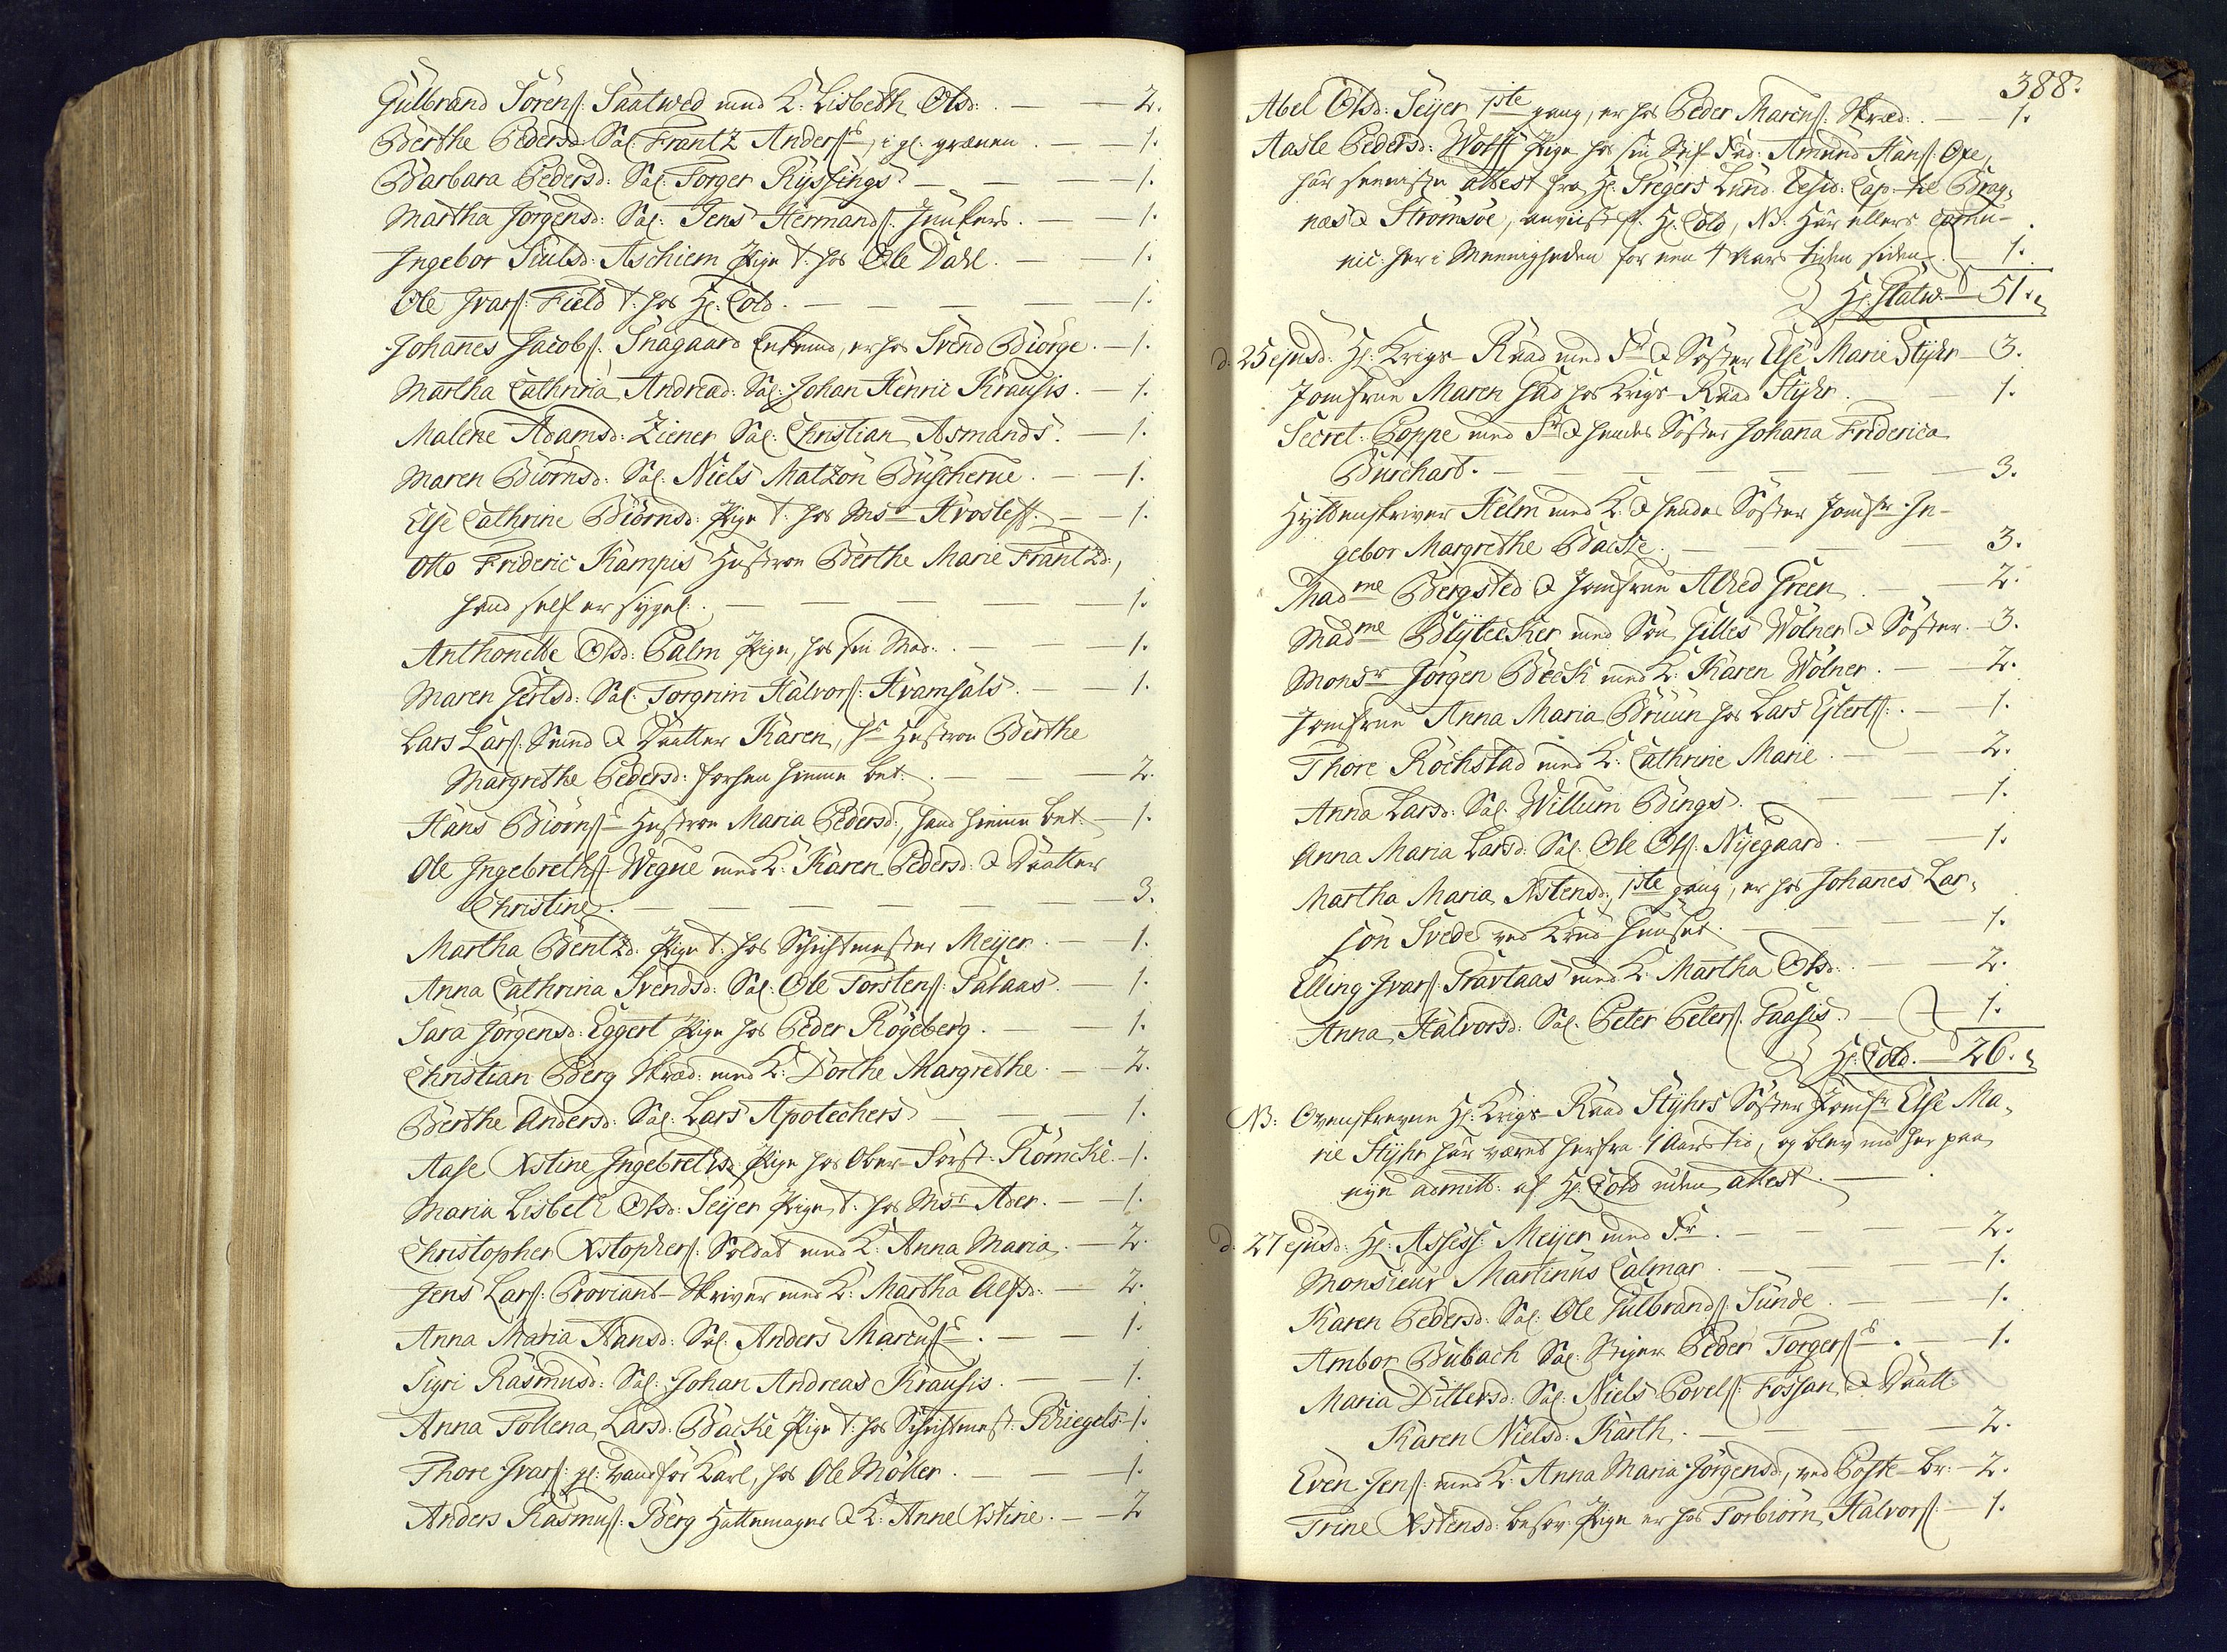 Gulbrand Sörenſ: Saatwed med K: Lisbeth Olsd: — 2.
Berthe Pedersd: Sal: Frantz Anderſes, i gl: grænen. — 1.
Barbara Pedersd: Sal: Torger Ryssings — 1.
Martha Jörgensd: Sal: Jens Hermandſ: Junkers. — 1.
Ingebor Siulsd: Aschiem Pige t: hos Ole Dahl. — 1.
Ole Ivarſ: Field t: hos Hr: Cold. — 1.
Johanes Jacobſ: Snagaard Enkemd, er hos Svend Biörge. — 1.
Martha Cathrina Andread: Sal: Johan Henric Krausis. — 1.
Malene Adamsd: Ziener Sal: Christian Asmands. — 1.
Maren Biörnsd: Sal: Niels Matzon Buscherue. — 1.
Else Cathrine Biörnsd: Pige t: hos Msr Kroslef. — 1.
Otto Frideric Kampis Hustroe Berthe Marie Frantzd:,
hand self er sygel: — 1.
Anthonette Olsd: Palm Pige, hos sin Mod: — 1.
Maren Gertsd: Sal: Torgrim Halvorſ: Kramsals. — 1.
Lars Larſ: Smed & Daatter Karen, hs Hustroe Berthe
Margrethe Pedersd: forhen hiemme bet: — 2.
Hans Biörnſes Hustroe Maria Pedersd:, hand hiemme bet: — 1.
Ole Ingebrethſ: Wegne med K: Karen Pedersd: & Daatter
Christine. — 3.
Martha Bentzd: Pige t: hos Schichtmester Meyer. — 1.
Anna Cathrina Svendsd: Sal: Ole Torstenſ: Salaas. — 1.
Sara Jörgensd: Eggert Pige hos Peder Rögeberg. — 1.
Christian Berg Skræd: med K: Dorthe Margrethe. — 2.
Berthe Andersd: Sal: Lars Apotechers — 1.
Aase Xstine Ingebrethsd: Pige hos Ober-Först: Römcke. — 1.
Maria Lisbeth Olsd: Seyer Pige t: hos Msr Ader. — 1.
Christopher Xstopherſ: Soldat med K: Anna Maria. — 2.
Jens Larſ: Proviant-Skriver med K: Martha Alfsd: — 2.
Anna Maria Hansd: Sal: Anders Marcuſes. — 1.
Sigri Rasmusd: Sal: Johan Andreas Krausis. — 1.
Anna Tollena Larsd: Backe Pige t: hos Schichtmest: Kriegels — 1.
Thore Ivarſ: gl: Karl, hos Ole Möller. — 1.
Anders Rasmuſ: Berg Hattemager & K: Anne Xstine. — 2
388.
Abel Olsd: Seyer 1ste gang, er hos Peder Marcuſ: Skræd: — 1.
Aasle Pedersd: Wolff Pige hos sin Stif-Fad: Amund Hanſ: Oxe,
har seeniste attest fra Hr: Gregers Lund Resid: Cap: til Brag,
næs & Strömsöe, anviist fr: Hr: Cold, NB: Har ellers comu-
nic: her i Menigheden for een 4 Aars tiden siden. — 1.
Hr: Slatw: — 51.
d. 25 ejusd: Hr: Krigs-Raad med Fr & Söster Else Marie Styhr — 3.
Jomfrue Maren Gad hos Krigs-Raad Styhr. — 1.
Secret: Poppe med Fr & hendes Söster Johana Friderica
Burchart. — 3.
Hyttenskriver Helm med K: & hendes Söster Jomfr: In-
gebor Margrethe Backe. — 3.
Madme Bergsted & Jomfrue Alhed Green. — 2.
Madme Blytecker med Sön Gilles Wölner & Söster. — 3.
Monsr Jörgen Beck med K: Karen Wölner. — 2.
Jomfrue Anna Maria Bruun hos Lars Eylertſ: — 1.
Thore Röchstad med K: Cathrine Marie. — 2.
Anna Larsd: Sal: Willum Bings. — 1.
Anna Maria Larsd: Sal: Ole Olſ: Nyegaard. — 1.
Martha Maria Xstensd:, 1ste gang, er hos Johanes Lar,
sön Svede ved Krud-Huuset. — 1.
Elling Ivarſ: Travtaas med K: Martha Olsd: — 2.
Anna Halvorsd: Sal: Peter Peterſ: Faasis. — 1.
Hr: Cold. — 26.
NB: Ovenskrevne Hr: Krigs-Raad Styhrs Söster Jomfr Else Ma,
rie Styhr har været herfra 1 Aars tid, og blev nu her paa
nye admitt: af Hr: Cold uden attest.
d. 27 ejusd: Hr: Assess: Meyer med Fr. — 2.
Monsieur Martinus Calmar. — 1.
Karen Pedersd: Sal: Ole Gulbrandſ: Sunde. — 1.
Ambor Bubach Sal: Stiger Peder Torgerſes. — 1.
Maria Ditlevsd: Sal: Niels Povelſ: Fossan & Daatt:
Karen Nielsd: Karth. — 2.
Even Jenſ: med K: Anna Maria Jörgensd:, ved Poste-Br: — 2.
Trine Xstensd: besov: Pige er hos Torbiörn Halvorſ: — 1.